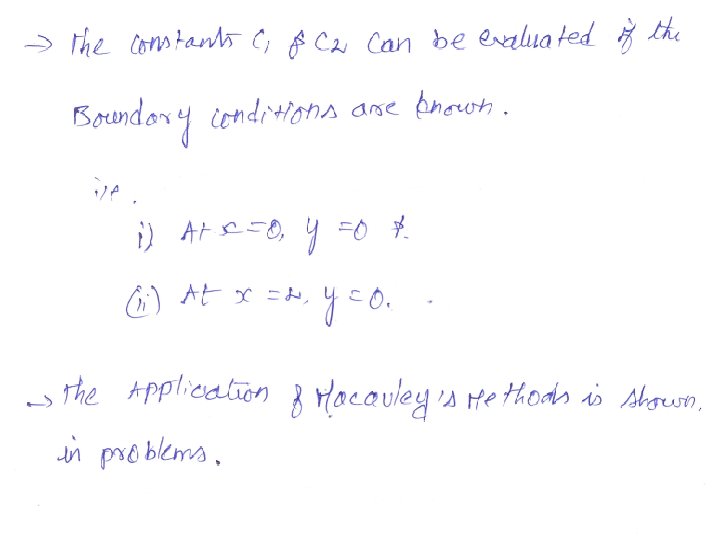 → The constants C1 & C2 can be evaluated if the
Boundary conditions are known.
i.e.
i) At x=0, y=0 &
(ii) At x = L, y=0.
→ The Application of Macauley's Methods is shown,
in problems.